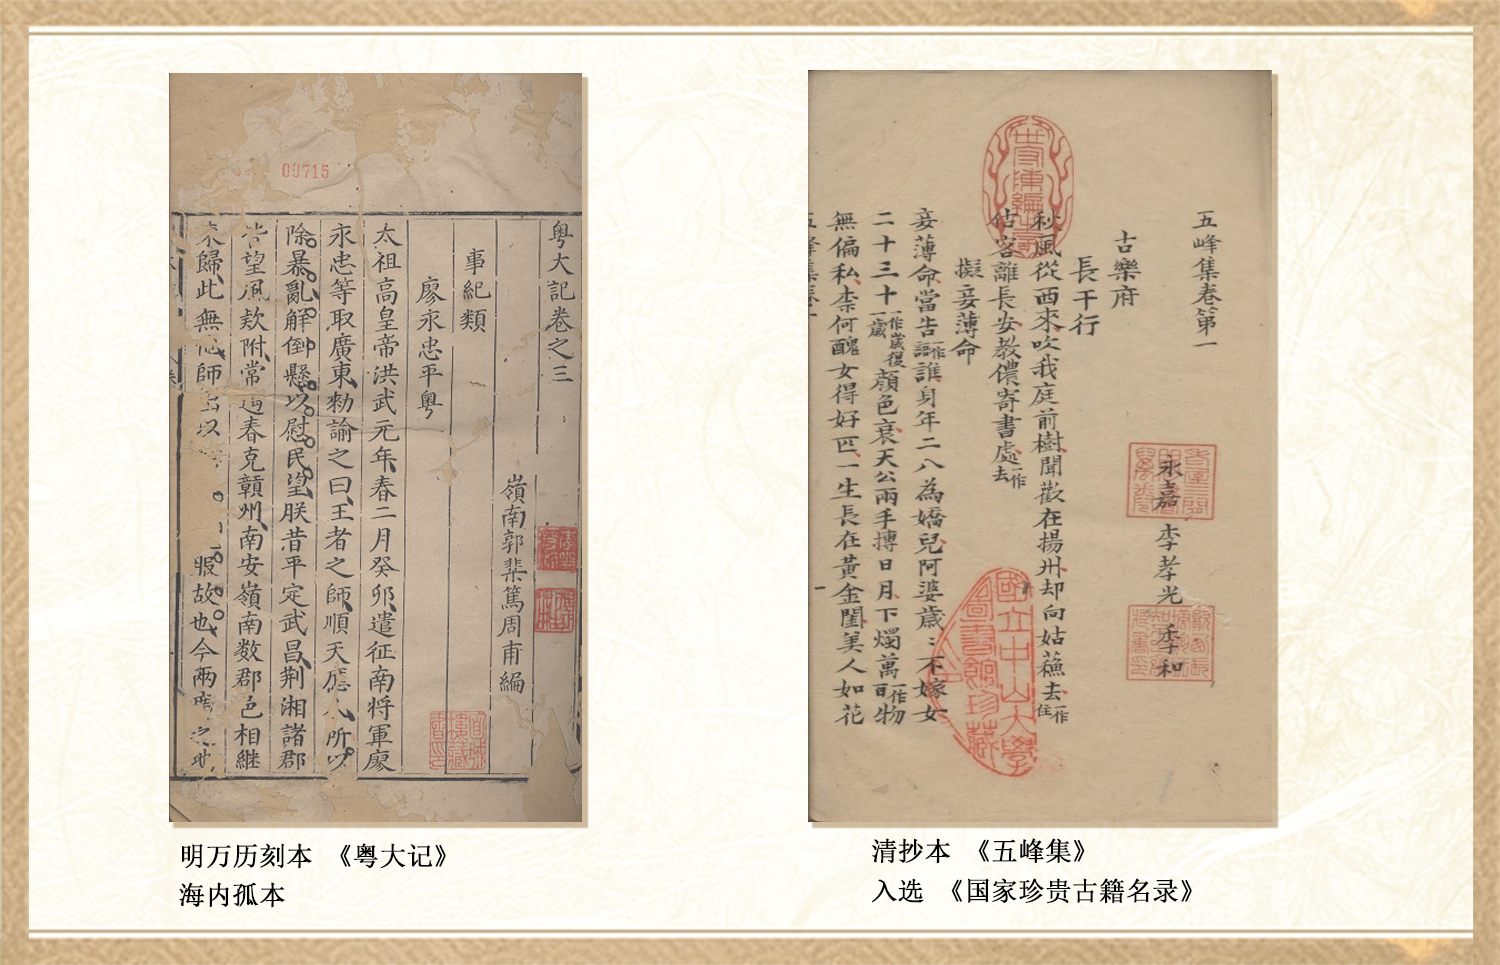 00715
粤大記卷之三
嶺南郭棐篤周甫編
事紀類
廖永忠平粤
太祖高皇帝洪武元年春二月癸夘遣征南将軍廖
永忠等取廣東勑諭之曰王者之師順天應人所以
除暴亂解倒懸以慰民望朕昔平定武昌荆湘諸郡
望風欵附常 春克贛州南安嶺南数郡邑相継
来歸此無 師出以 服故也今兩 之地
明万历刻本 《粤大记》
海内孤本
五峰集卷第一
永嘉 李孝光 季和
古樂府
長干行
秋風從西來吹我庭前樹聞歡在揚州却向姑蘓去一作住
估客離長安教儂寄書處一作去
擬妾薄命
妾薄命當告一作語誰身年二八為嬌兒阿婆歲〻不嫁女
二十三十一作歲復一歲顔色衰天公兩手摶日月下燭萬一作百物
無偏私柰何醜女得好匹一生長在黃金閨美人如花
五峰集卷一
國立中山大學
圖書館珍藏
清抄本 《五峰集》
入选 《国家珍贵古籍名录》